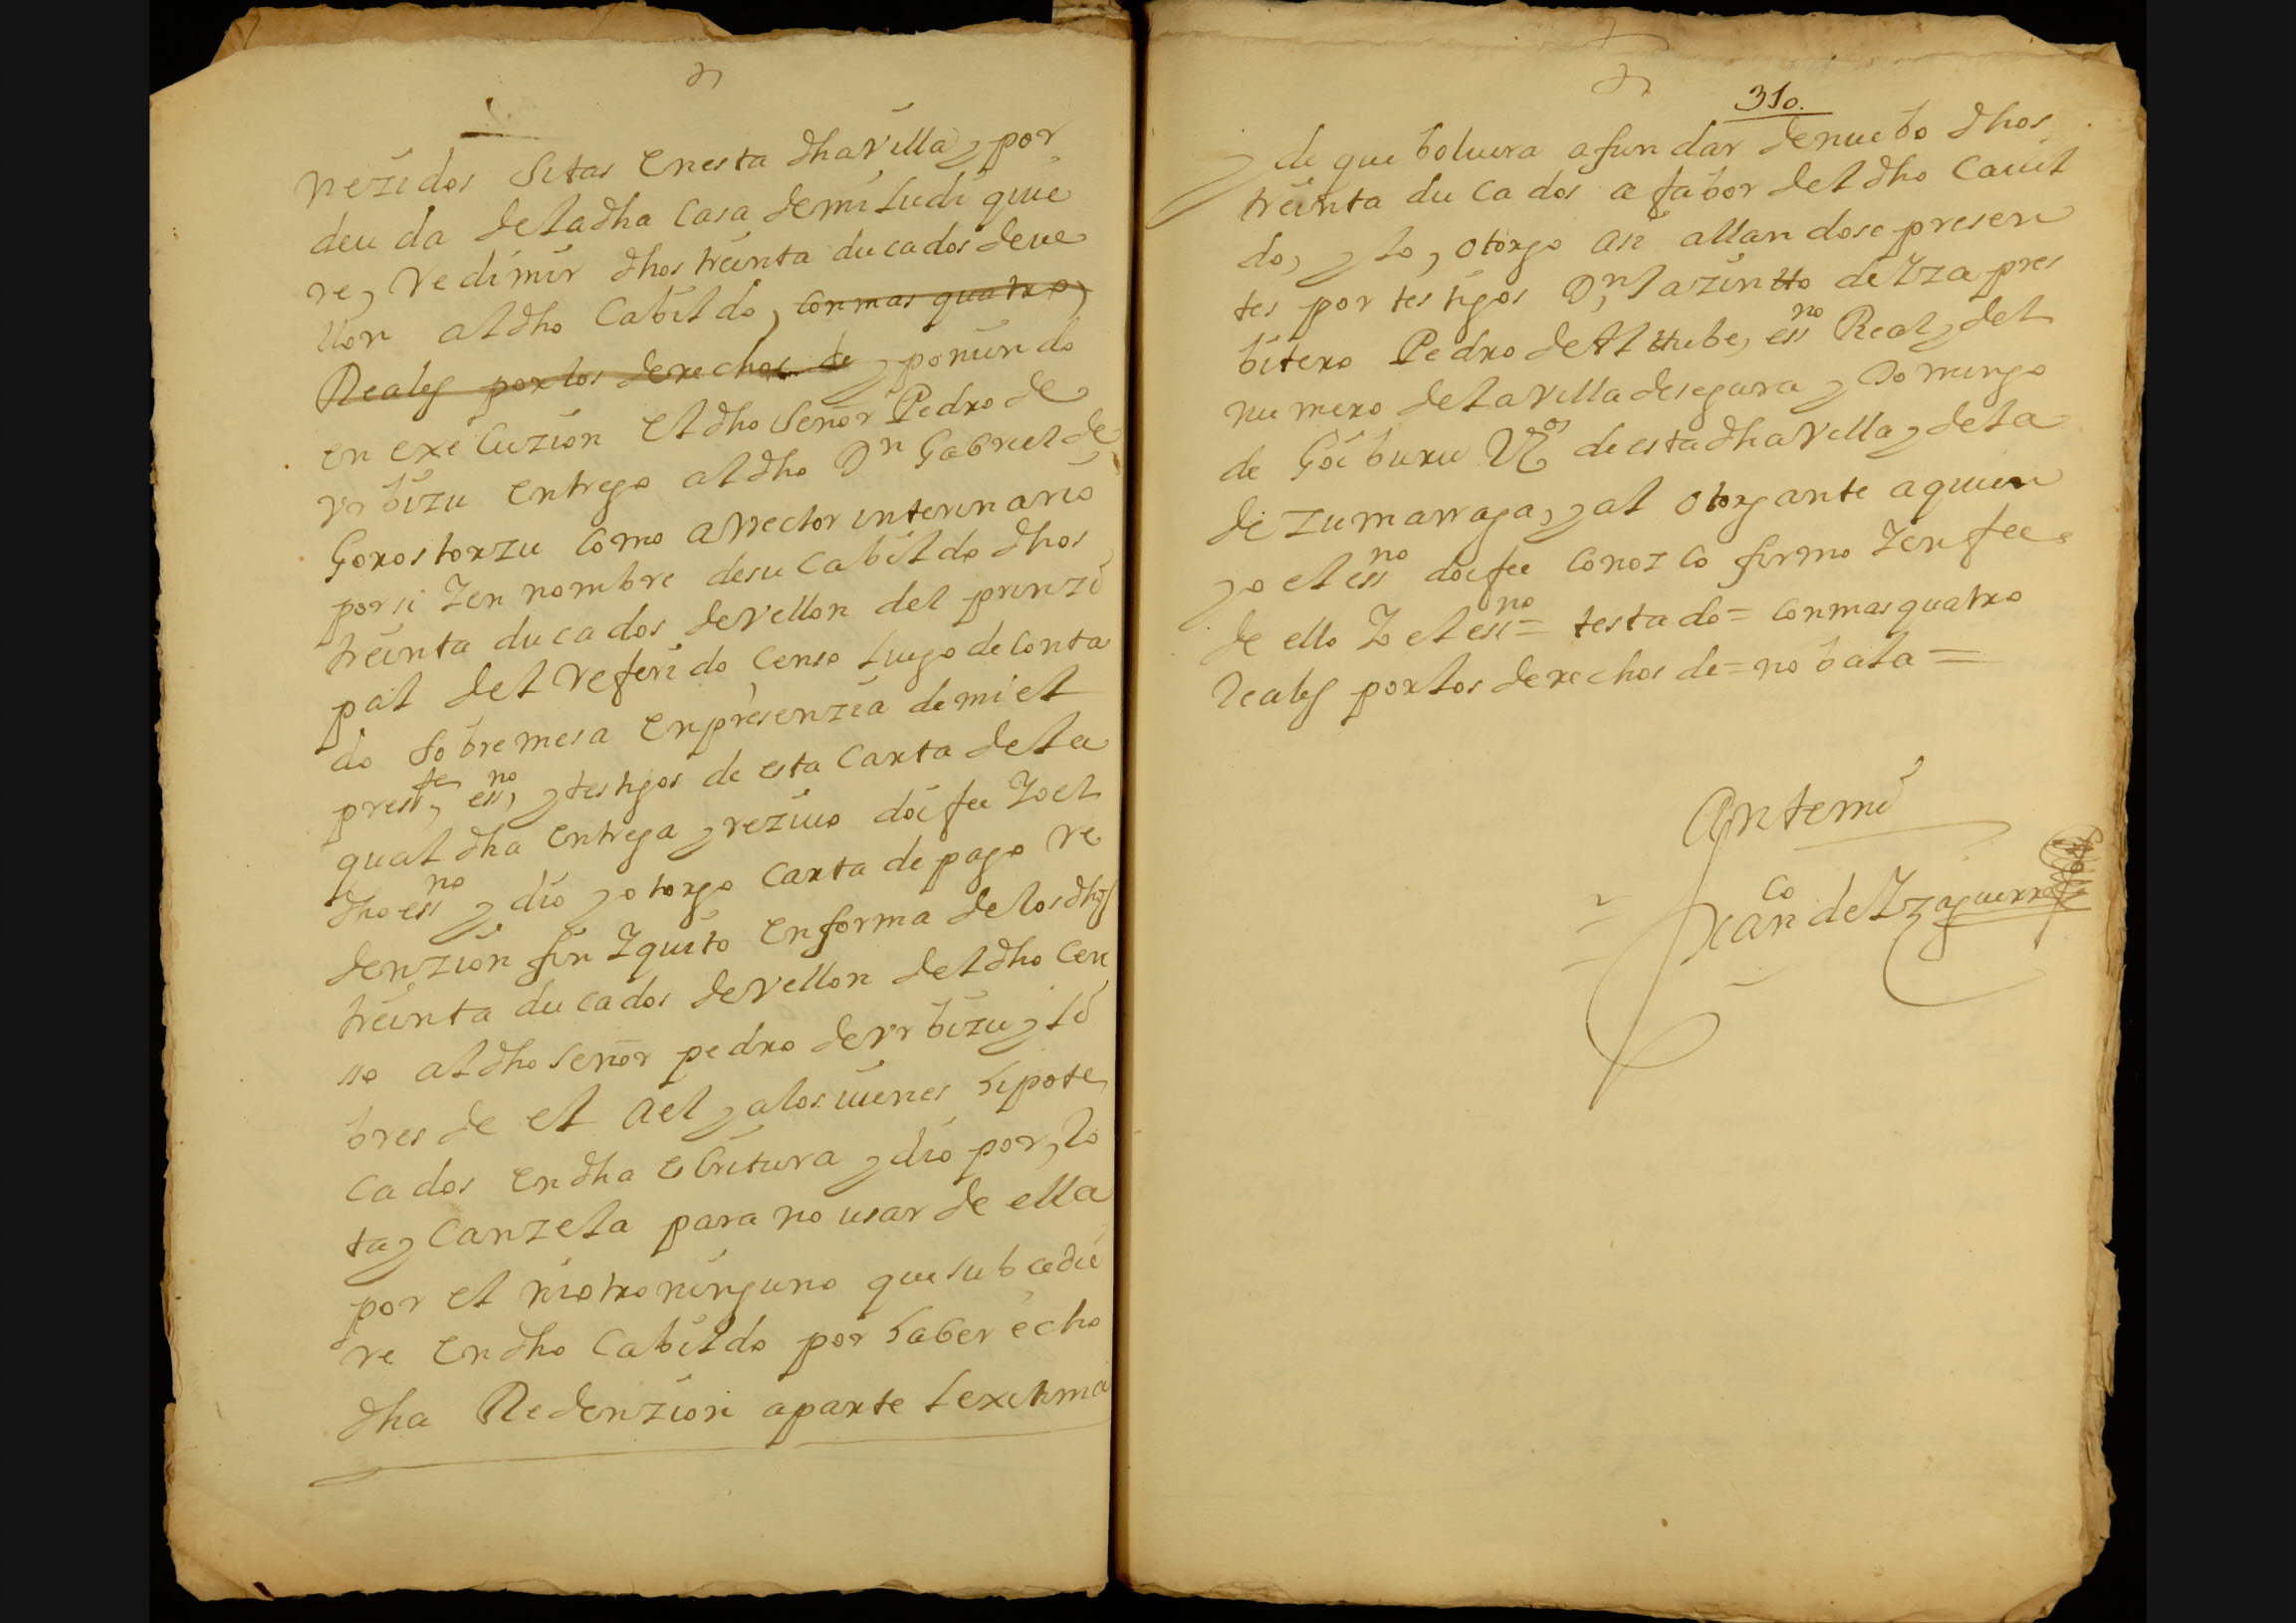 nezidos sitas en esta dha villa y por
deuda de la dha casa de mi sudi quie
re, Redimir dhos treinta ducados de ve
llon al dho Cabildo, con mas quatro,
Reales por los derechos de y poniendo
en execuzion el dho señor Pedro de
Vrbizu entrego al dho Dn Gabriel de
Gorostorzu como a Rector interinario
por si Y en nombre de su Cabildo dhos
treinta ducados de vellon del prinzi
pal del referido censo luego de conta
do sobre mesa en presenzia de mi el
presste, essno, y testigos de esta Carta de la
qual dha entrega y rezivo doi fee Yo el
dho essno y dio y otorgo Carta de pago re
denzion fin Y quito en forma de los dhos
treinta ducados de vellon del dho cen
sso al dho señor pedro de Vrbizu y li
bres de el a el y a los vienes hipote
cados en dha escritura y dio por, Ro
ta y Canzela para no usar de ella
por el ni otro ninguno que subcedie
re en dho Cabildo por haber echo
dha Redenzion a parte lexitima
310.
y de que boluera a fundar de nuebo dhos
treinta ducados a fabor del dho Cauil
do, y lo, otorgo asi allandose presen
tes por testigos Dn Jazintto de Yza pres
bitero Pedro de Alttube, essno Real y del
numero de la villa de segura y Domingo
de Goiburu Vos de esta dha Villa y de la
de Zumarraga, y al otorgante a quien
yo el essno doi fee conozco firmo Y en fee
de ello Yo el essno = testado = con mas quatro
Reales por los derechos de = no bala =
Ante mi
Franco de Yzaguirre